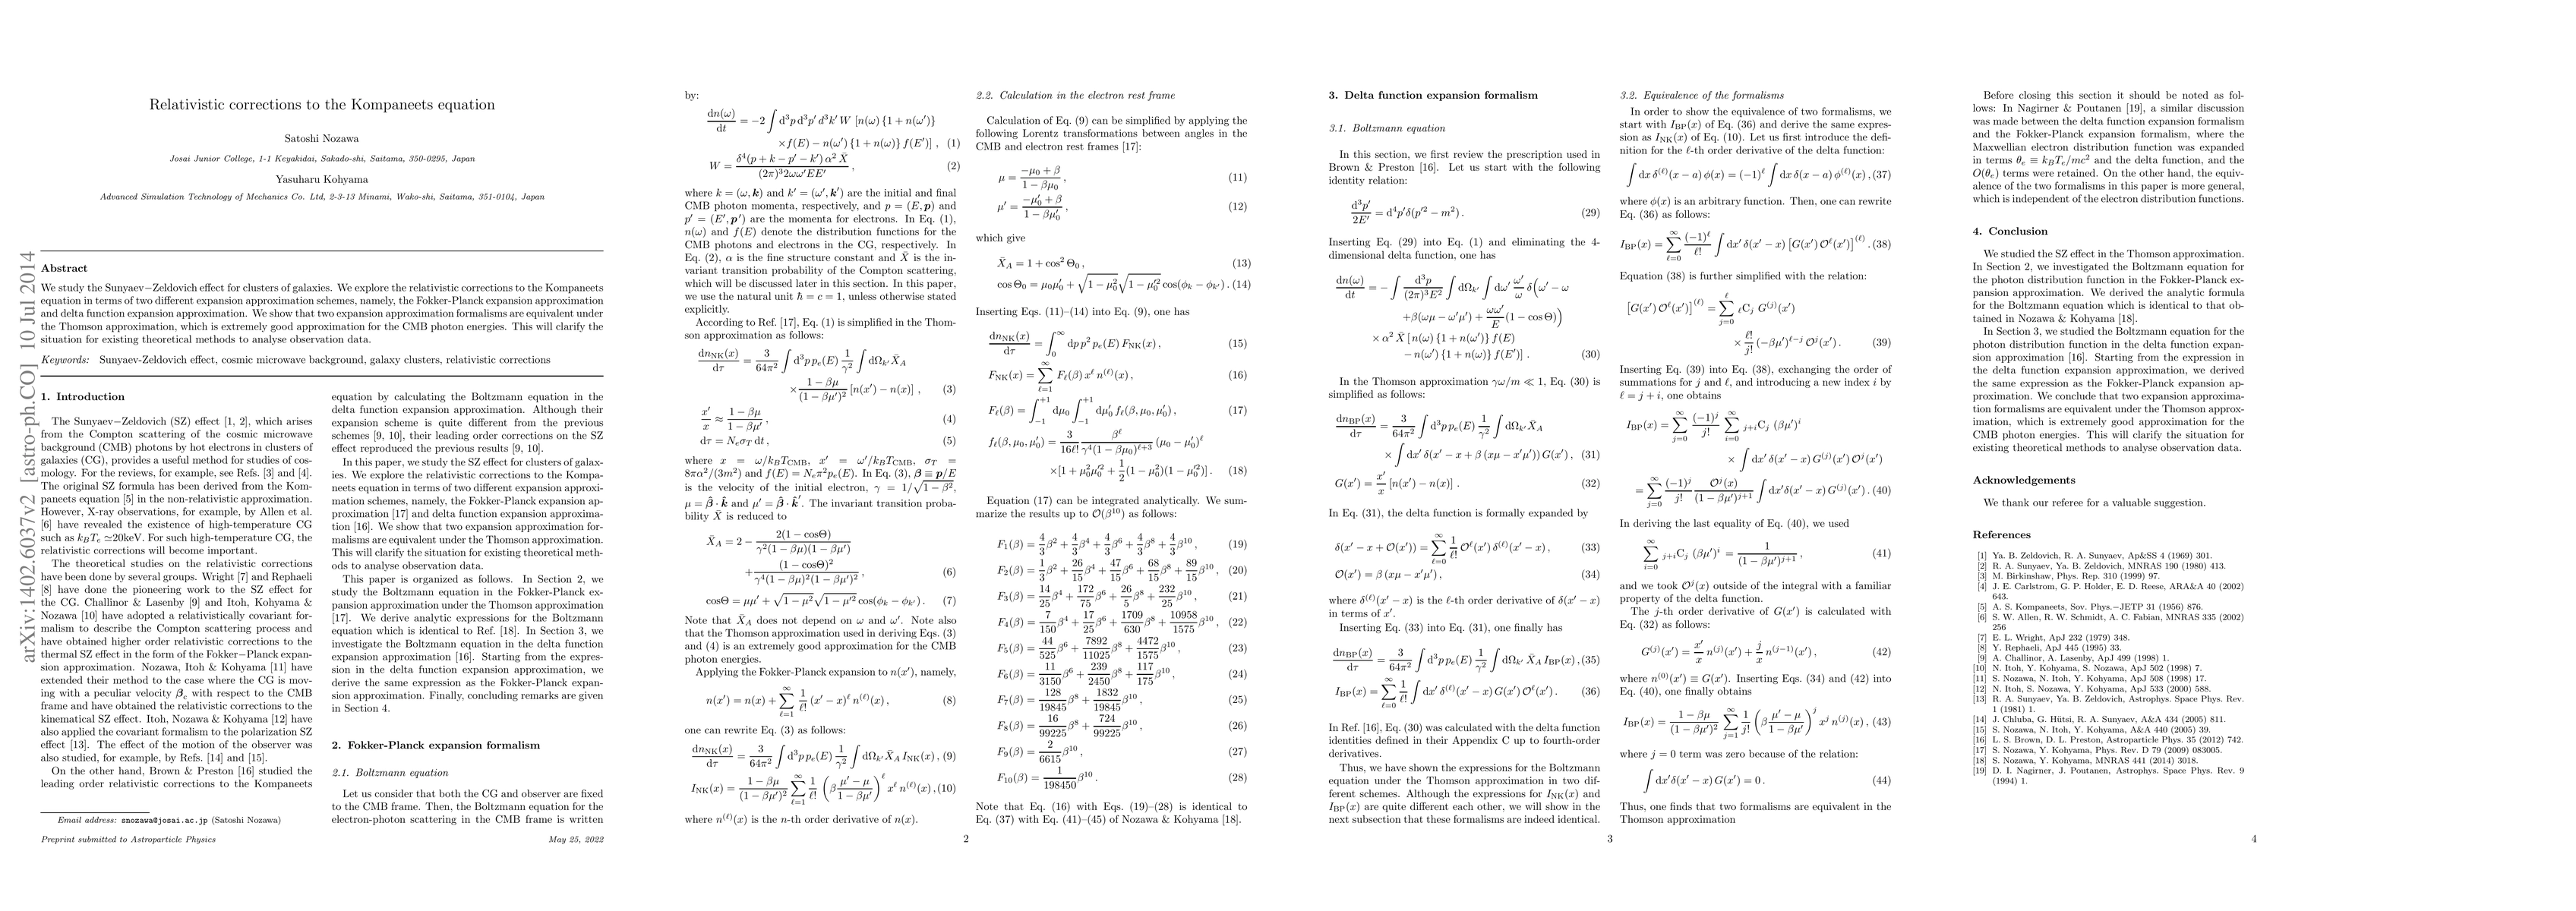 Relativistic corrections to the Kompaneets equation
Satoshi Nozawa
Josai Junior College, 1-1 Keyakidai, Sakado-shi, Saitama, 350-0295, Japan
Yasuharu Kohyama
Advanced Simulation Technology of Mechanics Co. Ltd, 2-3-13 Minami, Wako-shi, Saitama, 351-0104, Japan
arXiv:1402.6037v2 [astro-ph.CO] 10 Jul 2014
Abstract
We study the Sunyaev−Zeldovich effect for clusters of galaxies. We explore the relativistic corrections to the Kompaneets
equation in terms of two different expansion approximation schemes, namely, the Fokker-Planck expansion approximation
and delta function expansion approximation. We show that two expansion approximation formalisms are equivalent under
the Thomson approximation, which is extremely good approximation for the CMB photon energies. This will clarify the
situation for existing theoretical methods to analyse observation data.
Keywords: Sunyaev-Zeldovich effect, cosmic microwave background, galaxy clusters, relativistic corrections
1. Introduction
The Sunyaev−Zeldovich (SZ) effect [1, 2], which arises
from the Compton scattering of the cosmic microwave
background (CMB) photons by hot electrons in clusters of
galaxies (CG), provides a useful method for studies of cos-
mology. For the reviews, for example, see Refs. [3] and [4].
The original SZ formula has been derived from the Kom-
paneets equation [5] in the non-relativistic approximation.
However, X-ray observations, for example, by Allen et al.
[6] have revealed the existence of high-temperature CG
such as k_BT_e ≃20keV. For such high-temperature CG, the
relativistic corrections will become important.
The theoretical studies on the relativistic corrections
have been done by several groups. Wright [7] and Rephaeli
[8] have done the pioneering work to the SZ effect for
the CG. Challinor & Lasenby [9] and Itoh, Kohyama &
Nozawa [10] have adopted a relativistically covariant for-
malism to describe the Compton scattering process and
have obtained higher order relativistic corrections to the
thermal SZ effect in the form of the Fokker−Planck expan-
sion approximation. Nozawa, Itoh & Kohyama [11] have
extended their method to the case where the CG is mov-
ing with a peculiar velocity β_c with respect to the CMB
frame and have obtained the relativistic corrections to the
kinematical SZ effect. Itoh, Nozawa & Kohyama [12] have
also applied the covariant formalism to the polarization SZ
effect [13]. The effect of the motion of the observer was
also studied, for example, by Refs. [14] and [15].
On the other hand, Brown & Preston [16] studied the
leading order relativistic corrections to the Kompaneets
Email address: snozawa@josai.ac.jp (Satoshi Nozawa)
Preprint submitted to Astroparticle Physics
equation by calculating the Boltzmann equation in the
delta function expansion approximation. Although their
expansion scheme is quite different from the previous
schemes [9, 10], their leading order corrections on the SZ
effect reproduced the previous results [9, 10].
In this paper, we study the SZ effect for clusters of galax-
ies. We explore the relativistic corrections to the Kompa-
neets equation in terms of two different expansion approxi-
mation schemes, namely, the Fokker-Planck expansion ap-
proximation [17] and delta function expansion approxima-
tion [16]. We show that two expansion approximation for-
malisms are equivalent under the Thomson approximation.
This will clarify the situation for existing theoretical meth-
ods to analyse observation data.
This paper is organized as follows. In Section 2, we
study the Boltzmann equation in the Fokker-Planck ex-
pansion approximation under the Thomson approximation
[17]. We derive analytic expressions for the Boltzmann
equation which is identical to Ref. [18]. In Section 3, we
investigate the Boltzmann equation in the delta function
expansion approximation [16]. Starting from the expres-
sion in the delta function expansion approximation, we
derive the same expression as the Fokker-Planck expan-
sion approximation. Finally, concluding remarks are given
in Section 4.
2. Fokker-Planck expansion formalism
2.1. Boltzmann equation
Let us consider that both the CG and observer are fixed
to the CMB frame. Then, the Boltzmann equation for the
electron-photon scattering in the CMB frame is written
May 25, 2022
by:
dn(ω)/dt = −2 ∫ d³p d³p′ d³k′ W [n(ω) {1 + n(ω′)}
×f(E) − n(ω′) {1 + n(ω)} f(E′)] , (1)
W = δ⁴(p + k − p′ − k′) α² X̄ / ((2π)³2ωω′EE′) , (2)
where k = (ω, k) and k′ = (ω′, k′) are the initial and final
CMB photon momenta, respectively, and p = (E, p) and
p′ = (E′, p′) are the momenta for electrons. In Eq. (1),
n(ω) and f(E) denote the distribution functions for the
CMB photons and electrons in the CG, respectively. In
Eq. (2), α is the fine structure constant and X̄ is the in-
variant transition probability of the Compton scattering,
which will be discussed later in this section. In this paper,
we use the natural unit ħ = c = 1, unless otherwise stated
explicitly.
According to Ref. [17], Eq. (1) is simplified in the Thom-
son approximation as follows:
dn_NK(x)/dτ = 3/(64π²) ∫ d³p p_e(E) 1/γ² ∫ dΩ_k′ X̄_A
× (1 − βμ)/(1 − βμ′)² [n(x′) − n(x)] , (3)
x′/x ≈ (1 − βμ)/(1 − βμ′) , (4)
dτ = N_eσ_T dt , (5)
where x = ω/k_BT_CMB, x′ = ω′/k_BT_CMB, σ_T =
8πα²/(3m²) and f(E) = N_eπ²p_e(E). In Eq. (3), β ≡ p/E
is the velocity of the initial electron, γ = 1/√(1 − β²),
μ = β̂ · k̂ and μ′ = β̂ · k̂′. The invariant transition proba-
bility X̄ is reduced to
X̄_A = 2 − 2(1 − cosΘ)/(γ²(1 − βμ)(1 − βμ′))
+ (1 − cosΘ)²/(γ⁴(1 − βμ)²(1 − βμ′)²) , (6)
cosΘ = μμ′ + √(1 − μ²)√(1 − μ′²) cos(φ_k − φ_k′) . (7)
Note that X̄_A does not depend on ω and ω′. Note also
that the Thomson approximation used in deriving Eqs. (3)
and (4) is an extremely good approximation for the CMB
photon energies.
Applying the Fokker-Planck expansion to n(x′), namely,
n(x′) = n(x) + Σ_{ℓ=1}^∞ 1/ℓ! (x′ − x)^ℓ n^(ℓ)(x) , (8)
one can rewrite Eq. (3) as follows:
dn_NK(x)/dτ = 3/(64π²) ∫ d³p p_e(E) 1/γ² ∫ dΩ_k′ X̄_A I_NK(x) , (9)
I_NK(x) = (1 − βμ)/(1 − βμ′)² Σ_{ℓ=1}^∞ 1/ℓ! (β (μ′ − μ)/(1 − βμ′))^ℓ x^ℓ n^(ℓ)(x) , (10)
where n^(ℓ)(x) is the n-th order derivative of n(x).
2.2. Calculation in the electron rest frame
Calculation of Eq. (9) can be simplified by applying the
following Lorentz transformations between angles in the
CMB and electron rest frames [17]:
μ = (−μ₀ + β)/(1 − βμ₀) , (11)
μ′ = (−μ′₀ + β)/(1 − βμ′₀) , (12)
which give
X̄_A = 1 + cos² Θ₀ , (13)
cos Θ₀ = μ₀μ′₀ + √(1 − μ₀²)√(1 − μ′₀²) cos(φ_k − φ_k′) . (14)
Inserting Eqs. (11)–(14) into Eq. (9), one has
dn_NK(x)/dτ = ∫₀^∞ dp p² p_e(E) F_NK(x) , (15)
F_NK(x) = Σ_{ℓ=1}^∞ F_ℓ(β) x^ℓ n^(ℓ)(x) , (16)
F_ℓ(β) = ∫_{−1}^{+1} dμ₀ ∫_{−1}^{+1} dμ′₀ f_ℓ(β, μ₀, μ′₀) , (17)
f_ℓ(β, μ₀, μ′₀) = 3/(16ℓ!) β^ℓ/(γ⁴(1 − βμ₀)^{ℓ+3}) (μ₀ − μ′₀)^ℓ
×[1 + μ₀²μ′₀² + 1/2(1 − μ₀²)(1 − μ′₀²)] . (18)
Equation (17) can be integrated analytically. We sum-
marize the results up to O(β¹⁰) as follows:
F₁(β) = 4/3 β² + 4/3 β⁴ + 4/3 β⁶ + 4/3 β⁸ + 4/3 β¹⁰ , (19)
F₂(β) = 1/3 β² + 26/15 β⁴ + 47/15 β⁶ + 68/15 β⁸ + 89/15 β¹⁰ , (20)
F₃(β) = 14/25 β⁴ + 172/75 β⁶ + 26/5 β⁸ + 232/25 β¹⁰ , (21)
F₄(β) = 7/150 β⁴ + 17/25 β⁶ + 1709/630 β⁸ + 10958/1575 β¹⁰ , (22)
F₅(β) = 44/525 β⁶ + 7892/11025 β⁸ + 4472/1575 β¹⁰ , (23)
F₆(β) = 11/3150 β⁶ + 239/2450 β⁸ + 117/175 β¹⁰ , (24)
F₇(β) = 128/19845 β⁸ + 1832/19845 β¹⁰ , (25)
F₈(β) = 16/99225 β⁸ + 724/99225 β¹⁰ , (26)
F₉(β) = 2/6615 β¹⁰ , (27)
F₁₀(β) = 1/198450 β¹⁰ . (28)
Note that Eq. (16) with Eqs. (19)–(28) is identical to
Eq. (37) with Eq. (41)–(45) of Nozawa & Kohyama [18].
2
3. Delta function expansion formalism
3.1. Boltzmann equation
In this section, we first review the prescription used in
Brown & Preston [16]. Let us start with the following
identity relation:
d³p′/2E′ = d⁴p′δ(p′² − m²) . (29)
Inserting Eq. (29) into Eq. (1) and eliminating the 4-
dimensional delta function, one has
dn(ω)/dt = − ∫ d³p/((2π)³E²) ∫ dΩ_k′ ∫ dω′ ω′/ω δ(ω′ − ω
+β(ωμ − ω′μ′) + ωω′/E (1 − cosΘ))
× α² X̄ [ n(ω) {1 + n(ω′)} f(E)
− n(ω′) {1 + n(ω)} f(E′)] . (30)
In the Thomson approximation γω/m ≪ 1, Eq. (30) is
simplified as follows:
dn_BP(x)/dτ = 3/(64π²) ∫ d³p p_e(E) 1/γ² ∫ dΩ_k′ X̄_A
× ∫ dx′ δ(x′ − x + β (xμ − x′μ′)) G(x′) , (31)
G(x′) = x′/x [n(x′) − n(x)] . (32)
In Eq. (31), the delta function is formally expanded by
δ(x′ − x + O(x′)) = Σ_{ℓ=0}^∞ 1/ℓ! O^ℓ(x′) δ^(ℓ)(x′ − x) , (33)
O(x′) = β (xμ − x′μ′) , (34)
where δ^(ℓ)(x′ − x) is the ℓ-th order derivative of δ(x′ − x)
in terms of x′.
Inserting Eq. (33) into Eq. (31), one finally has
dn_BP(x)/dτ = 3/(64π²) ∫ d³p p_e(E) 1/γ² ∫ dΩ_k′ X̄_A I_BP(x) , (35)
I_BP(x) = Σ_{ℓ=0}^∞ 1/ℓ! ∫ dx′ δ^(ℓ)(x′ − x) G(x′) O^ℓ(x′) . (36)
In Ref. [16], Eq. (30) was calculated with the delta function
identities defined in their Appendix C up to fourth-order
derivatives.
Thus, we have shown the expressions for the Boltzmann
equation under the Thomson approximation in two dif-
ferent schemes. Although the expressions for I_NK(x) and
I_BP(x) are quite different each other, we will show in the
next subsection that these formalisms are indeed identical.
3.2. Equivalence of the formalisms
In order to show the equivalence of two formalisms, we
start with I_BP(x) of Eq. (36) and derive the same expres-
sion as I_NK(x) of Eq. (10). Let us first introduce the defi-
nition for the ℓ-th order derivative of the delta function:
∫ dx δ^(ℓ)(x − a) φ(x) = (−1)^ℓ ∫ dx δ(x − a) φ^(ℓ)(x) , (37)
where φ(x) is an arbitrary function. Then, one can rewrite
Eq. (36) as follows:
I_BP(x) = Σ_{ℓ=0}^∞ (−1)^ℓ/ℓ! ∫ dx′ δ(x′ − x) [G(x′) O^ℓ(x′)]^(ℓ) . (38)
Equation (38) is further simplified with the relation:
[G(x′) O^ℓ(x′)]^(ℓ) = Σ_{j=0}^ℓ ℓC_j G^(j)(x′)
× ℓ!/j! (−βμ′)^{ℓ−j} O^j(x′) . (39)
Inserting Eq. (39) into Eq. (38), exchanging the order of
summations for j and ℓ, and introducing a new index i by
ℓ = j + i, one obtains
I_BP(x) = Σ_{j=0}^∞ (−1)^j/j! Σ_{i=0}^∞ j+iC_j (βμ′)^i
× ∫ dx′ δ(x′ − x) G^(j)(x′) O^j(x′)
= Σ_{j=0}^∞ (−1)^j/j! O^j(x)/(1 − βμ′)^{j+1} ∫ dx′δ(x′ − x) G^(j)(x′) . (40)
In deriving the last equality of Eq. (40), we used
Σ_{i=0}^∞ j+iC_j (βμ′)^i = 1/(1 − βμ′)^{j+1} , (41)
and we took O^j(x′) outside of the integral with a familiar
property of the delta function.
The j-th order derivative of G(x′) is calculated with
Eq. (32) as follows:
G^(j)(x′) = x′/x n^(j)(x′) + j/x n^(j−1)(x′) , (42)
where n^(0)(x′) ≡ G(x′). Inserting Eqs. (34) and (42) into
Eq. (40), one finally obtains
I_BP(x) = (1 − βμ)/(1 − βμ′)² Σ_{j=1}^∞ 1/j! (β (μ′ − μ)/(1 − βμ′))^j x^j n^(j)(x) , (43)
where j = 0 term was zero because of the relation:
∫ dx′δ(x′ − x) G(x′) = 0 . (44)
Thus, one finds that two formalisms are equivalent in the
Thomson approximation
3
Before closing this section it should be noted as fol-
lows: In Nagirner & Poutanen [19], a similar discussion
was made between the delta function expansion formalism
and the Fokker-Planck expansion formalism, where the
Maxwellian electron distribution function was expanded
in terms θ_e ≡ k_BT_e/mc² and the delta function, and the
O(θ_e) terms were retained. On the other hand, the equiv-
alence of the two formalisms in this paper is more general,
which is independent of the electron distribution functions.
4. Conclusion
We studied the SZ effect in the Thomson approximation.
In Section 2, we investigated the Boltzmann equation for
the photon distribution function in the Fokker-Planck ex-
pansion approximation. We derived the analytic formula
for the Boltzmann equation which is identical to that ob-
tained in Nozawa & Kohyama [18].
In Section 3, we studied the Boltzmann equation for the
photon distribution function in the delta function expan-
sion approximation [16]. Starting from the expression in
the delta function expansion approximation, we derived
the same expression as the Fokker-Planck expansion ap-
proximation. We conclude that two expansion approxima-
tion formalisms are equivalent under the Thomson approx-
imation, which is extremely good approximation for the
CMB photon energies. This will clarify the situation for
existing theoretical methods to analyse observation data.
Acknowledgements
We thank our referee for a valuable suggestion.
References
[1] Ya. B. Zeldovich, R. A. Sunyaev, Ap&SS 4 (1969) 301.
[2] R. A. Sunyaev, Ya. B. Zeldovich, MNRAS 190 (1980) 413.
[3] M. Birkinshaw, Phys. Rep. 310 (1999) 97.
[4] J. E. Carlstrom, G. P. Holder, E. D. Reese, ARA&A 40 (2002)
643.
[5] A. S. Kompaneets, Sov. Phys.−JETP 31 (1956) 876.
[6] S. W. Allen, R. W. Schmidt, A. C. Fabian, MNRAS 335 (2002)
256
[7] E. L. Wright, ApJ 232 (1979) 348.
[8] Y. Rephaeli, ApJ 445 (1995) 33.
[9] A. Challinor, A. Lasenby, ApJ 499 (1998) 1.
[10] N. Itoh, Y. Kohyama, S. Nozawa, ApJ 502 (1998) 7.
[11] S. Nozawa, N. Itoh, Y. Kohyama, ApJ 508 (1998) 17.
[12] N. Itoh, S. Nozawa, Y. Kohyama, ApJ 533 (2000) 588.
[13] R. A. Sunyaev, Ya. B. Zeldovich, Astrophys. Space Phys. Rev.
1 (1981) 1.
[14] J. Chluba, G. Hütsi, R. A. Sunyaev, A&A 434 (2005) 811.
[15] S. Nozawa, N. Itoh, Y. Kohyama, A&A 440 (2005) 39.
[16] L. S. Brown, D. L. Preston, Astroparticle Phys. 35 (2012) 742.
[17] S. Nozawa, Y. Kohyama, Phys. Rev. D 79 (2009) 083005.
[18] S. Nozawa, Y. Kohyama, MNRAS 441 (2014) 3018.
[19] D. I. Nagirner, J. Poutanen, Astrophys. Space Phys. Rev. 9
(1994) 1.
4